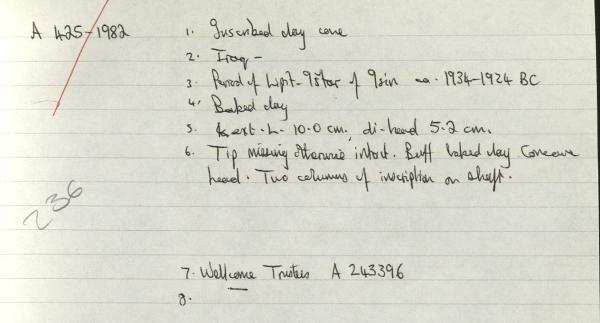 A 425-1982
1. Inscribed clay cone
2. Iraq -
3. Period of Lipit-Ištar of Isin ca. 1934-1924 BC
4. Baked clay
5. ext. L. 10.0 cm, di-head 5.2 cm.
6. Tip missing otherwise intact. Buff baked clay Concave
head. Two columns of inscription on shaft.
236
7. Wellcome Trustees A 243396
8.